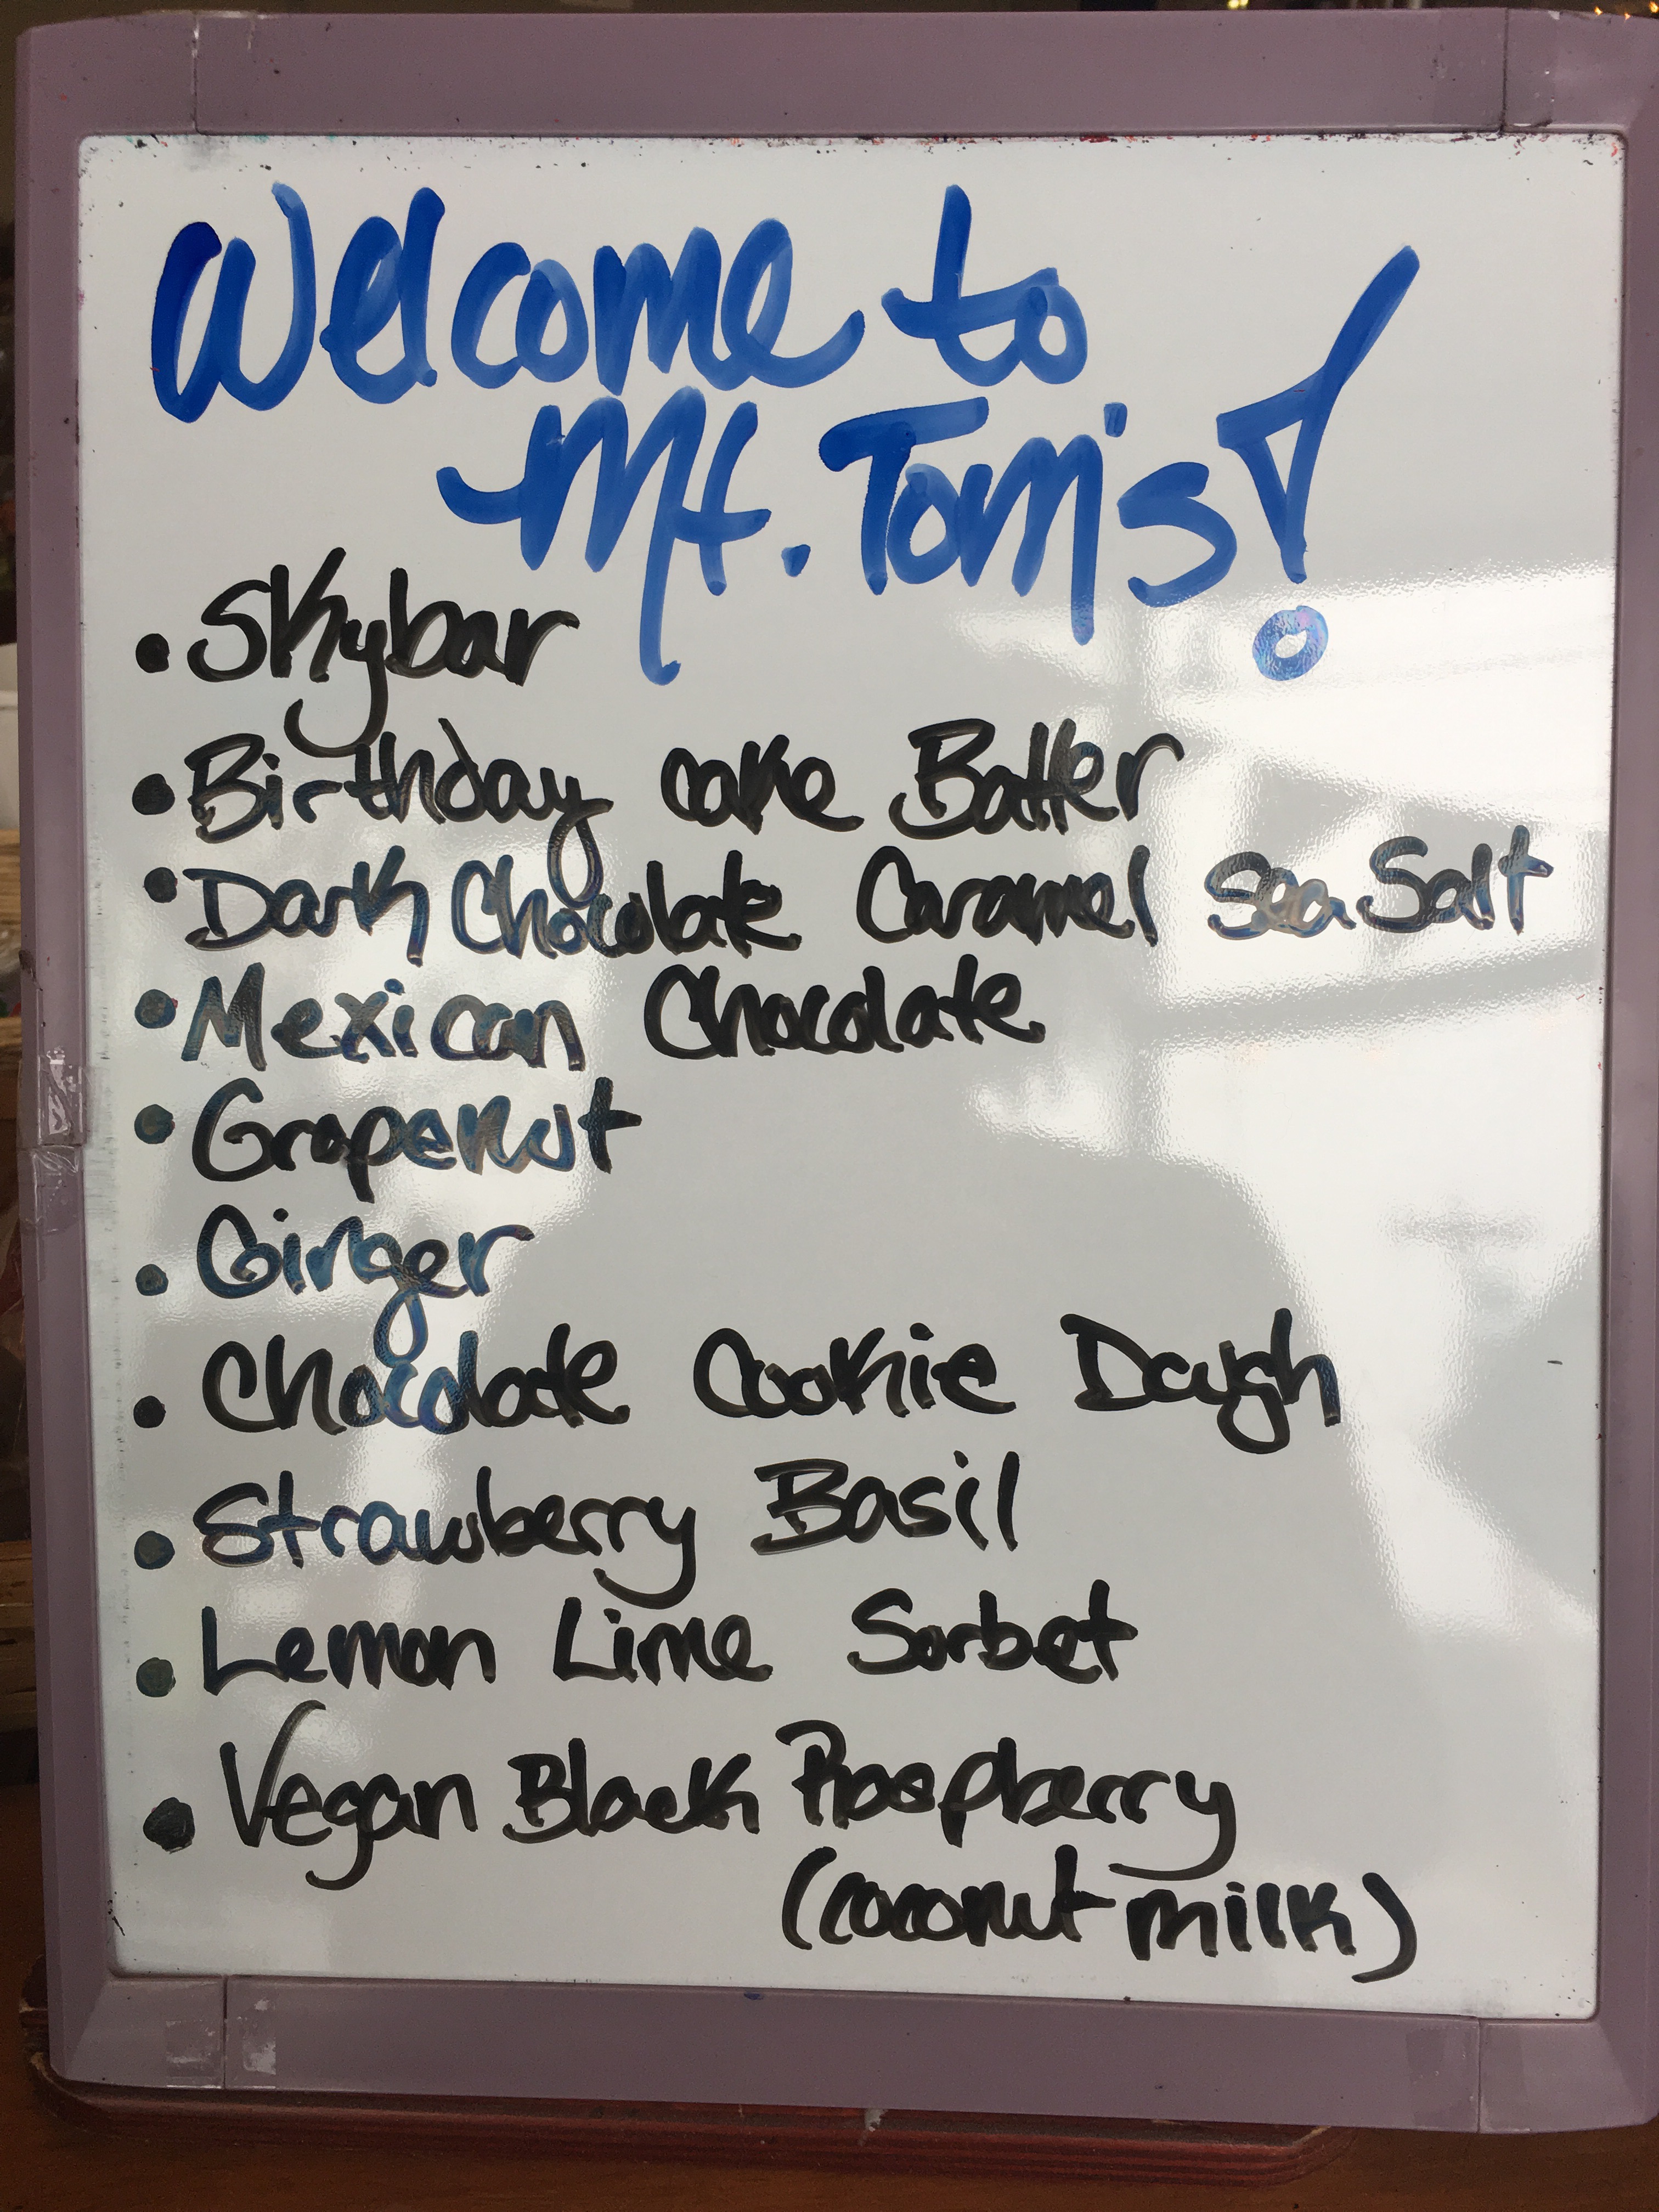 Welcome to
Mt. Tom's!
• Skybar
• Birthday cake Batter
• Dark Chocolate Caramel Sea Salt
• Mexican Chocolate
• Grapenut
• Ginger
• Chocolate Cookie Dough
• Strawberry Basil
• Lemon Lime Sorbet
• Vegan Black Raspberry
(coconut milk)